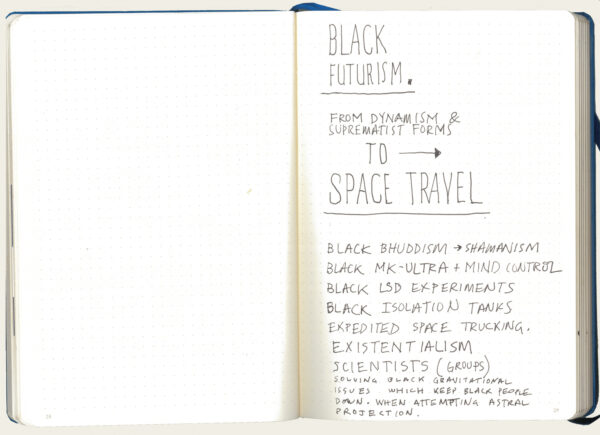 BLACK
FUTURISM.
FROM DYNAMISM &
SUPREMATIST FORMS
TO →
SPACE TRAVEL
BLACK BHUDDISM → SHAMANISM
BLACK MK-ULTRA + MIND CONTROL
BLACK LSD EXPERIMENTS
BLACK ISOLATION TANKS
EXPEDITED SPACE TRUCKING.
EXISTENTIALISM
SCIENTISTS (GROUPS)
SOLVING BLACK GRAVITATIONAL
ISSUES WHICH KEEP BLACK PEOPLE
DOWN. WHEN ATTEMPTING ASTRAL
PROJECTION.